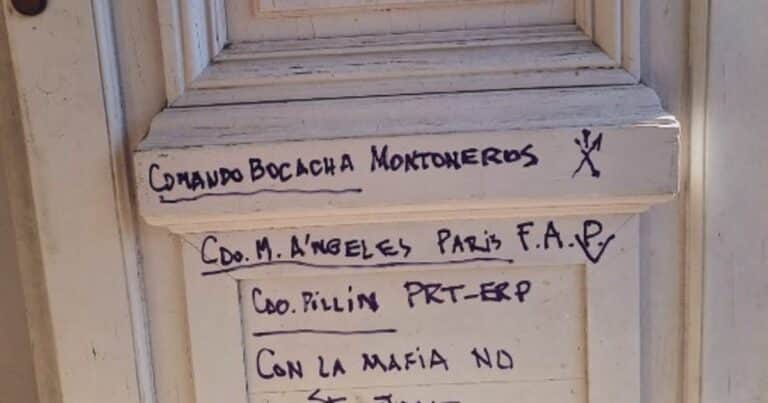 COMANDO BOCACHA MONTONEROS
CDO. M. ÁNGELES PARIS F.A.P.
CDO. PILLÍN PRT-ERP
CON LA MAFIA NO
SE